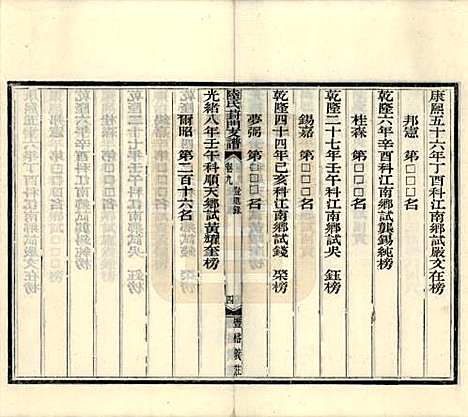 康熙五十六年丁酉科江南鄉試嚴文在榜
邦憲　第□□□名
乾隆六年辛酉科江南鄉試龔錫純榜
桂森　第□□□名
乾隆二十七年壬午科江南鄉試吳　鈺榜
錫嘉　第□□□名
乾隆四十四年己亥科江南鄉試錢　棨榜
夢弼　第□□□名
陸氏葑門支譜　卷九　登進錄　四　豐裕義莊
光緒八年壬午科順天鄉試黃耀奎榜
爾昭　第二百十六名